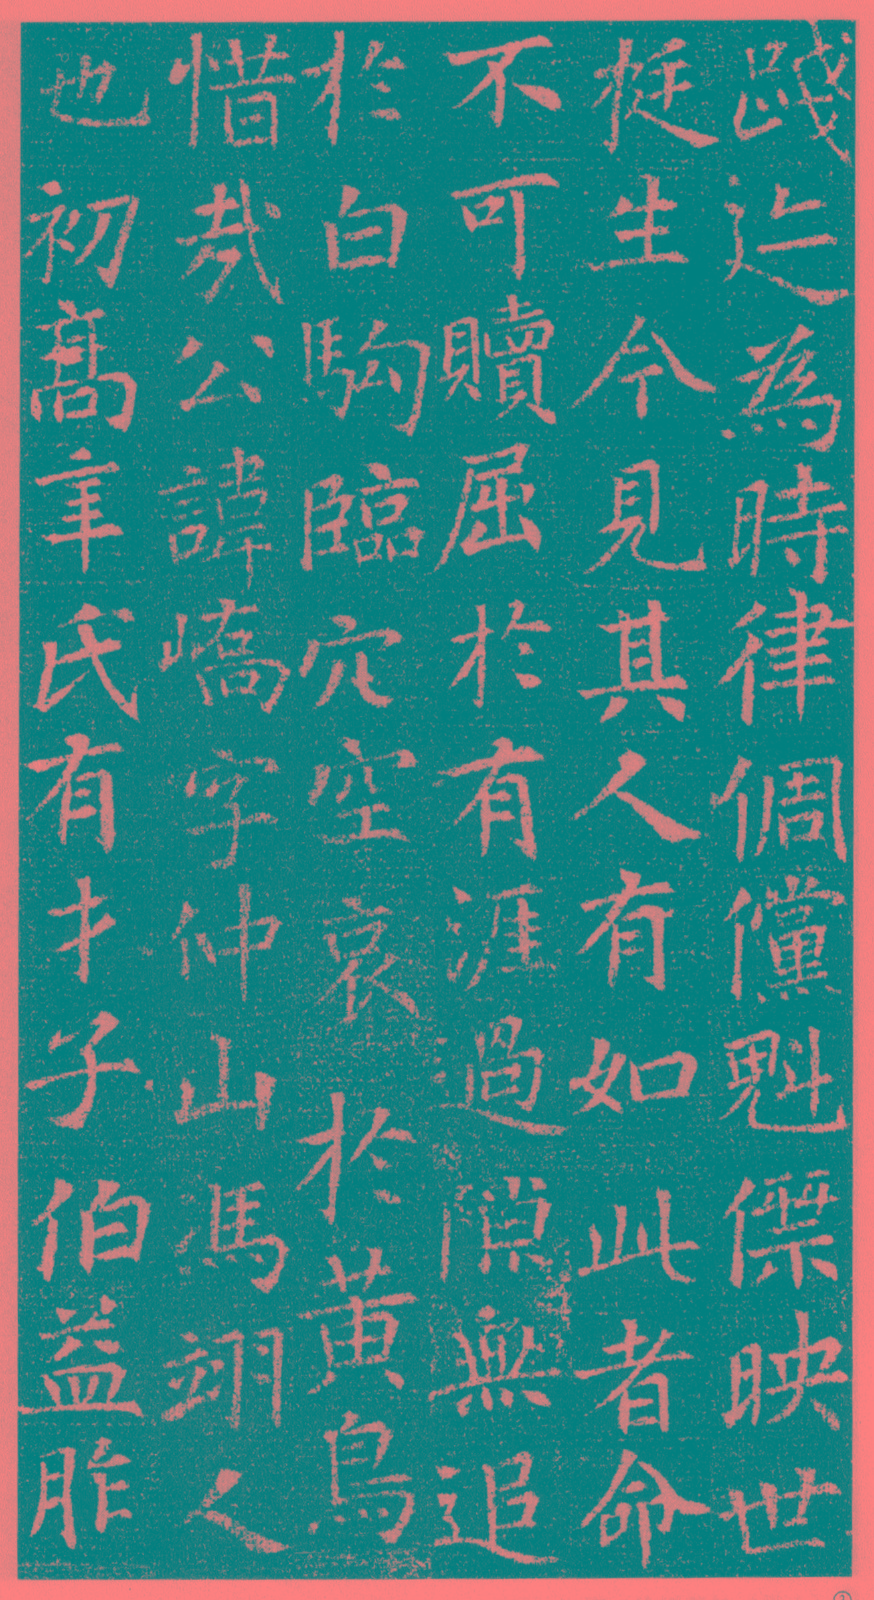 踐迄為時律倜儻魁僄映世
挺生今見其人有如此者命
不可贖屈於有涯過隙無追
於白駒臨穴空哀於黃鳥
惜哉公諱嶠字仲山馮翊人
也初髙辛氏有才子伯益胙